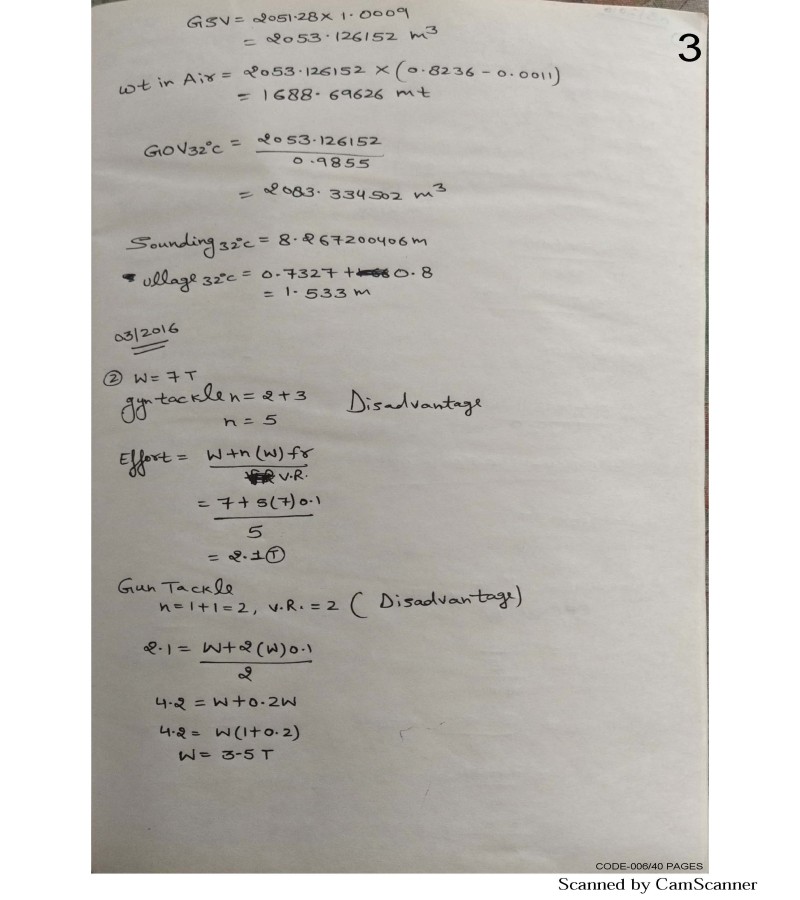 GSV = 2051.28 x 1.0009
= 2053.126152 m³
3
wt in Air = 2053.126152 x (0.8236 - 0.0011)
= 1688.69626 mt
GOV32°C = 2053.126152
0.9855
= 2083.334502 m³
Sounding 32°C = 8.267200406m
ullage 32°C = 0.7327 + 0.8
= 1.533 m
03/2016
② W = 7 T
gyn tackle n = 2 + 3 Disadvantage
n = 5
Effort = W + n (W) fr
V.R.
= 7 + 5(7) 0.1
5
= 2.1 Ⓣ
Gun Tackle
n = 1 + 1 = 2, V.R. = 2 ( Disadvantage)
2.1 = W + 2 (W) 0.1
2
4.2 = W + 0.2W
4.2 = W(1 + 0.2)
W = 3.5 T
CODE-006/40 PAGES
Scanned by CamScanner